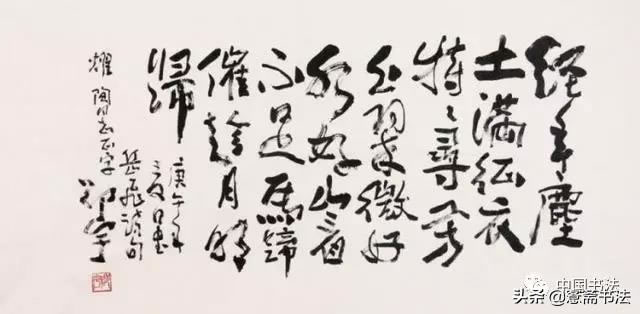 經年塵
土滿征衣
特々尋芳
上翠微好
水好山看
不足馬蹄
催趁月明
歸
庚午年
日書
岳飛詩句
耀陶同志正字
中国书法
头条 @斋书法